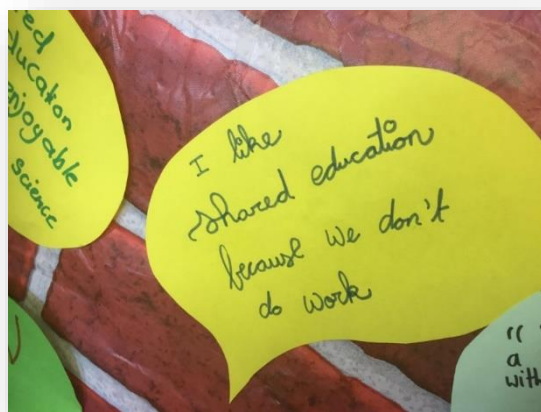 ed
ducation
enjoyable
science
I like
shared education
because we don't
do work
"
a
with